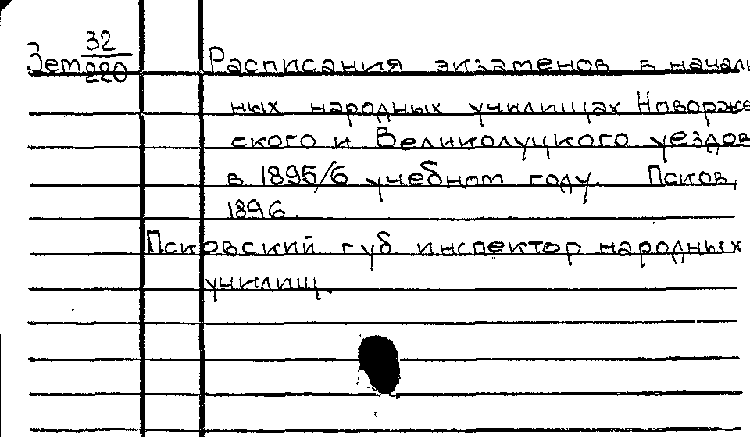 Зем 32/220 Расписания экзаменов в началь
ных народных училищах Новорже
ского и Великолуцкого уездов
в 1895/6 учебном году. Псков,
1896.
Псковский губ инспектор народных
училищ.